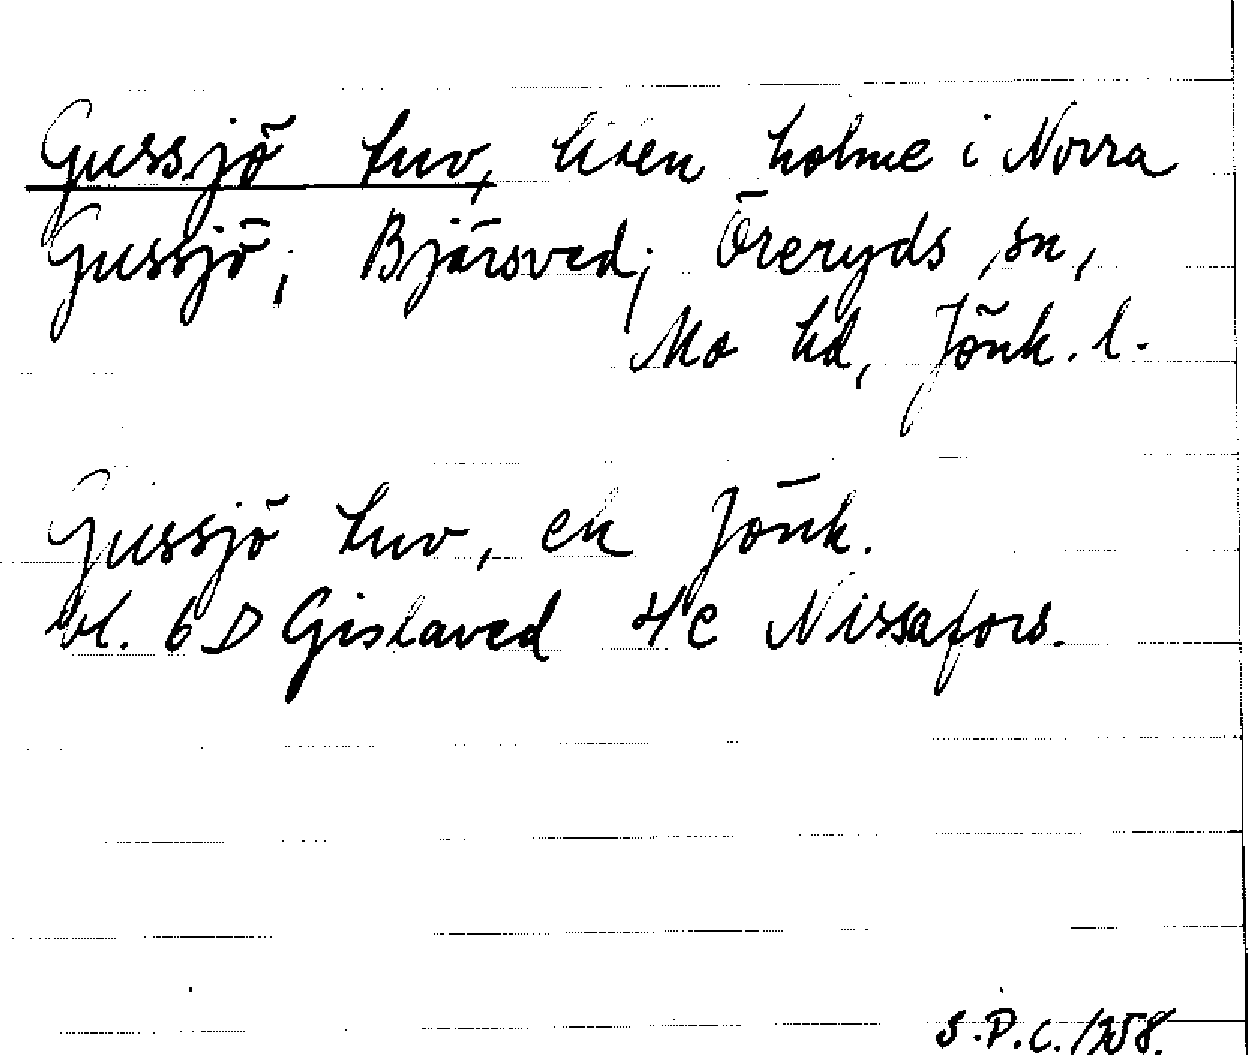 Gussjö tuv, liten holme i Norra
Gussjö; Bjärsved; Öreryds sn,
Mo hd, Jönk. l.
Gussjö tuv, ek Jönk.
bl. 6 D Gislaved 4 c Nissafors.
S.P.C. 1958.